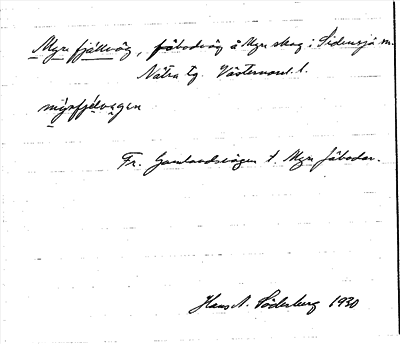 Myre fjällväg, fäbodväg å Myre skog i Sidensjö sn.
Nätra tg. Västernorrl. l.
myrfjelvegen
Fr. Gamlandsvägen t. Myre fäbodar.
Hans A. Söderberg 1930